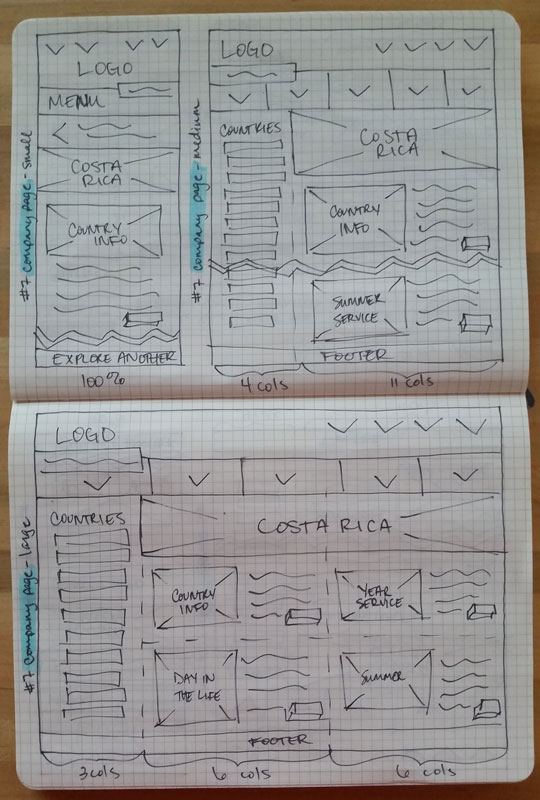 #7 Company page - small
LOGO
MENU
COSTA
RICA
COUNTRY
INFO
EXPLORE ANOTHER
100%
#7 Company page - medium
LOGO
COUNTRIES
COSTA
RICA
COUNTRY
INFO
SUMMER
SERVICE
FOOTER
4 cols
11 cols
#7 Company page - large
LOGO
COUNTRIES
COSTA RICA
COUNTRY
INFO
YEAR
SERVICE
DAY IN
THE LIFE
SUMMER
FOOTER
3 cols
6 cols
6 cols